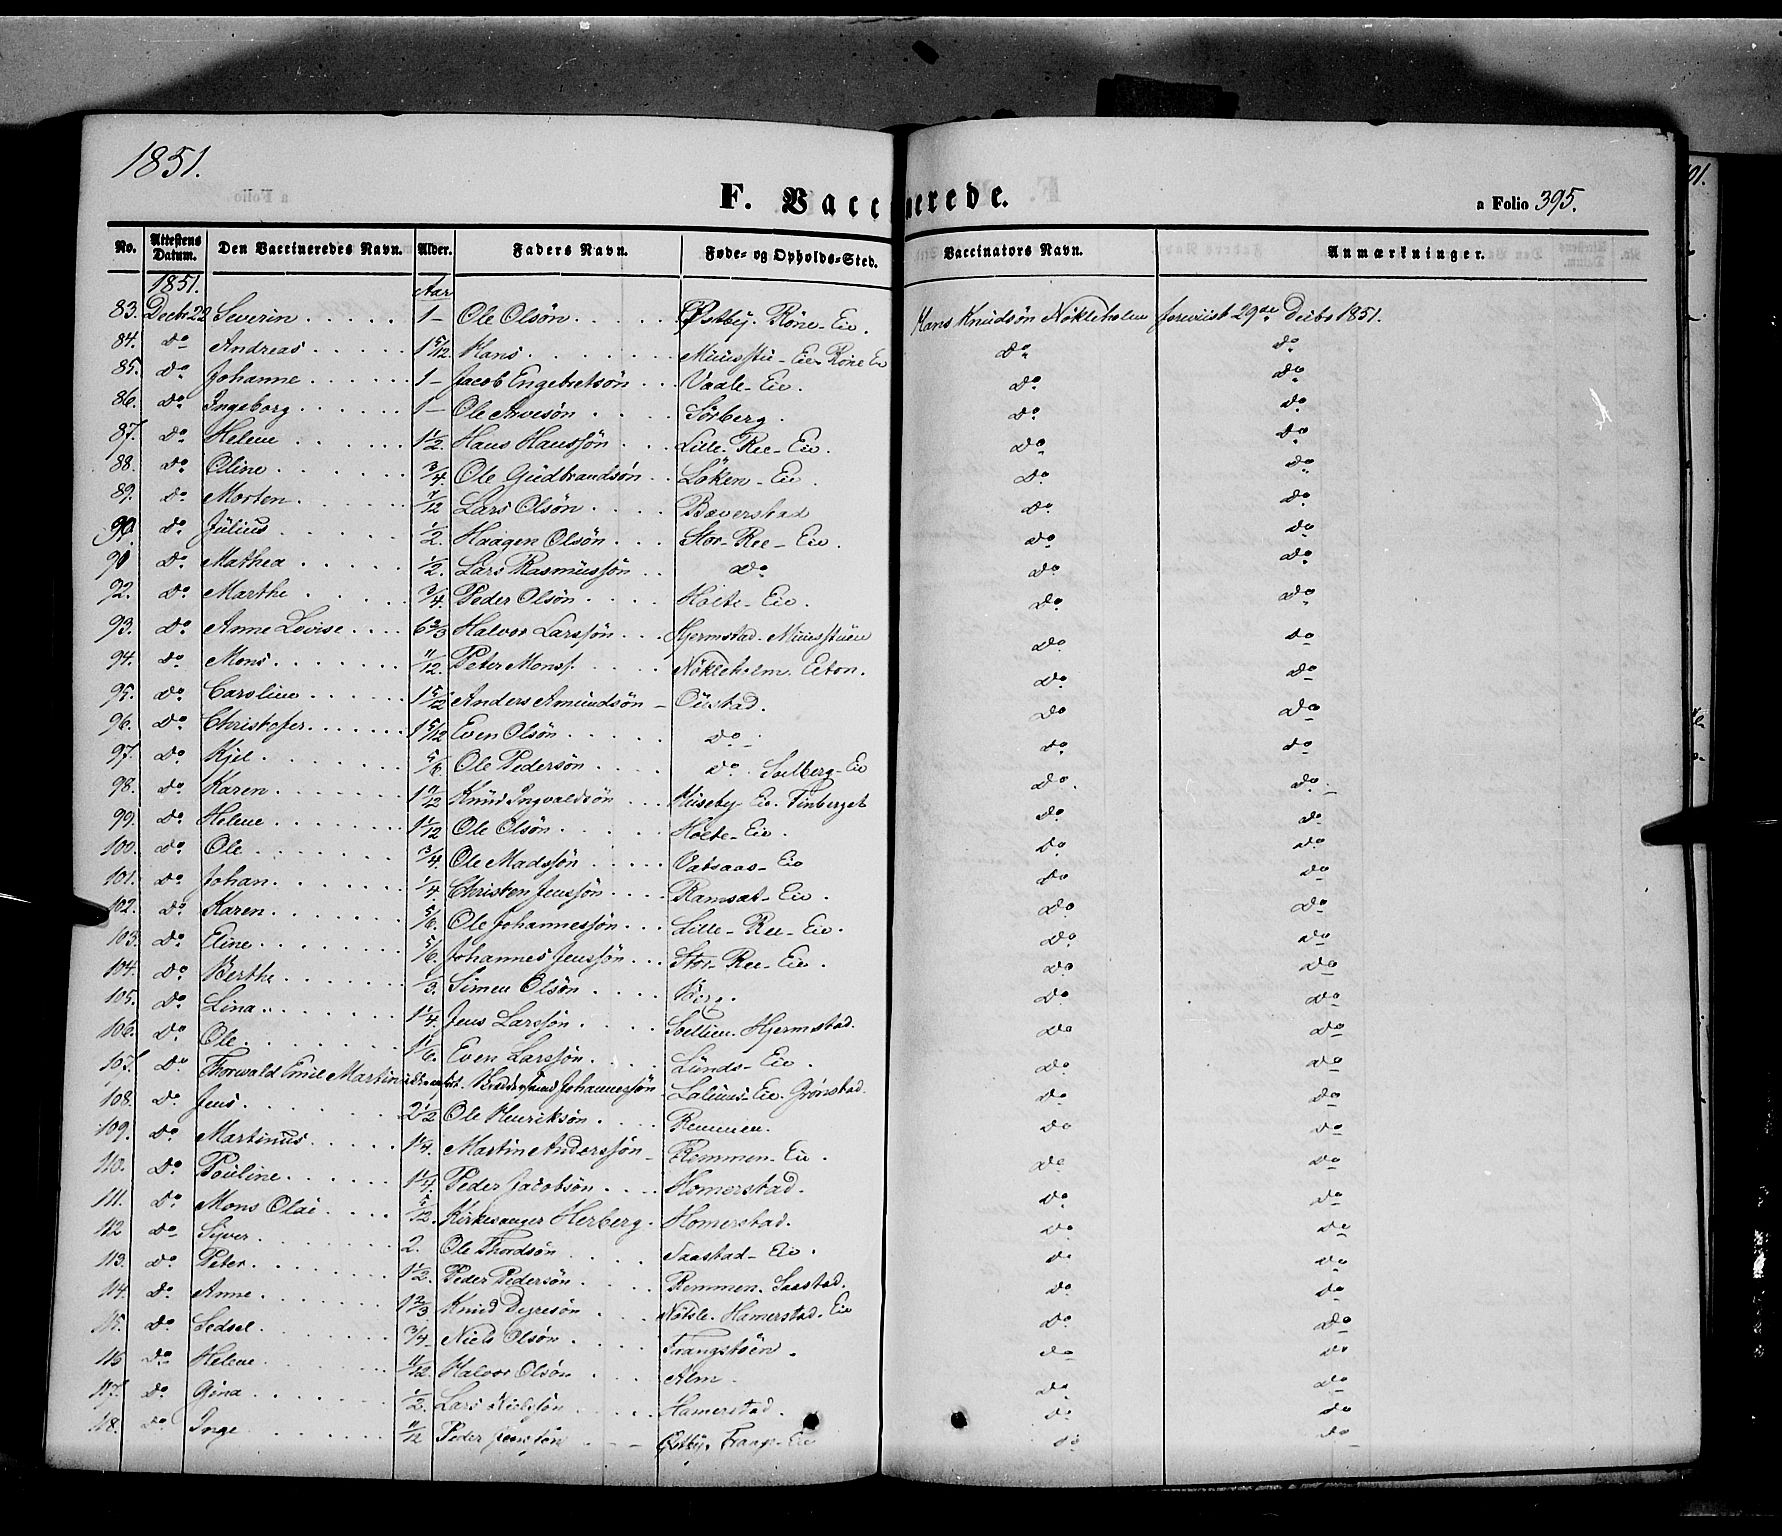 1851.
F. Vaccinerede.
a Folio 395.
No. Attestens Datum. Den Vaccineredes Navn. Alder. Faders Navn. Føde- og Opholds-Sted. Vaccinators Navn. Anmærkninger.
1851. Aar
83. Decbr 22 Severin 1 – Ole Olsøn Østby. Røne-Eie. Hans Knudsøn Nökleholm foreviist 29de Decbr 1851.
84. do Andreas 1 5/12 Hans Muusstu-Eie Røne Eie do do
85. do Johanne 1 – Jacob Engebretsøn Vaale-Eie. do do
86. do Ingeborg 1 – Ole Arvesøn Sörberg. do do
87. do Helene 1 1/2. Hans Hanssøn Lille-Ree-Eie. do do
88. do Oline 3/4. Ole Gudbrandsøn Löken-Eie. do do
89. do Morten 7/12 Lars Olsøn Bæverstad do do
90. do Julius 1/2. Haagen Olsøn Stor-Ree-Eie. do do
91 do Mathea 1/2. Lars Rasmussøn do do do
92. do Marthe 3/4. Peder Olsøn Holte-Eie. do do
93. do Anne Lovise 6 2/3 Halvor Larssøn Hjermstad-Muusstuen do do
94. do Mons 11/12. Peter Monss. Nökleholm Eieton. do do
95. do Caroline 1 5/12 Anders Amundsøn Öústad. do do
96. do Christofer 1 5/12 Even Olsøn do do do
97. do Kjel 5/6 Ole Pedersøn do Solberg-Eie do do
98. do Karen 1 11/12 Knud Ingvaldsøn Huseby-Eie. Finberget do do
99. do Helene 1 1/12 Ole Olsøn Holte-Eie. do do
100. do Ole 3/4. Ole Madssøn Vatsaas-Eie do do
101. do Johan 1/4. Christen Jenssøn Ramsat-Eie. do do
102. do Karen 5/6. Ole Johannessøn Lille-Ree-Eie. do do
103. do Eline 5/6 Johannes Jenssøn Stor-Ree-Eie. do do
104. do Berthe 1/3. Simen Olsøn Berg. do do
105. do Lina 1 1/4. Jens Larssøn Hjermstad. do do
106. do Ole 1 1/6. Even Larssøn Lunds-Eie. do do
107. do Thorwald Emil Martin Johannessøn Grönstad do do
108. do Jens 2 1/2 Ole Henriksøn Remmen. do do
109. do Martinus 1 1/4. Martin Anderssøn Remmen-Eie. do do
110. do Pouline 1 1/4 Peder Jacobsøn Homerstad. do do
111. do Mons Olai 5/12. Kirkesanger Herberg. Homerstad. do do
112 do Syver 2. Ole Thordsøn Saastad-Eie. do do
113. do Peter 1 1/2. Peder Pedersøn Remmen. Saastad. do do
114. do Anne 1 2/3. Knud Dyresøn Nötsle. Hamerstad-Eie do do
115. do Sedsel 3/4. Niels Olsøn Frangstöen. do do
116 do Helene 11/12. Halvor Olsøn Alm. do do
117. do Gina 1/2. Lars Nielssøn Hamerstad. do do
118. do Inge 11/12 Peder Jenssøn Østby. Eie do do